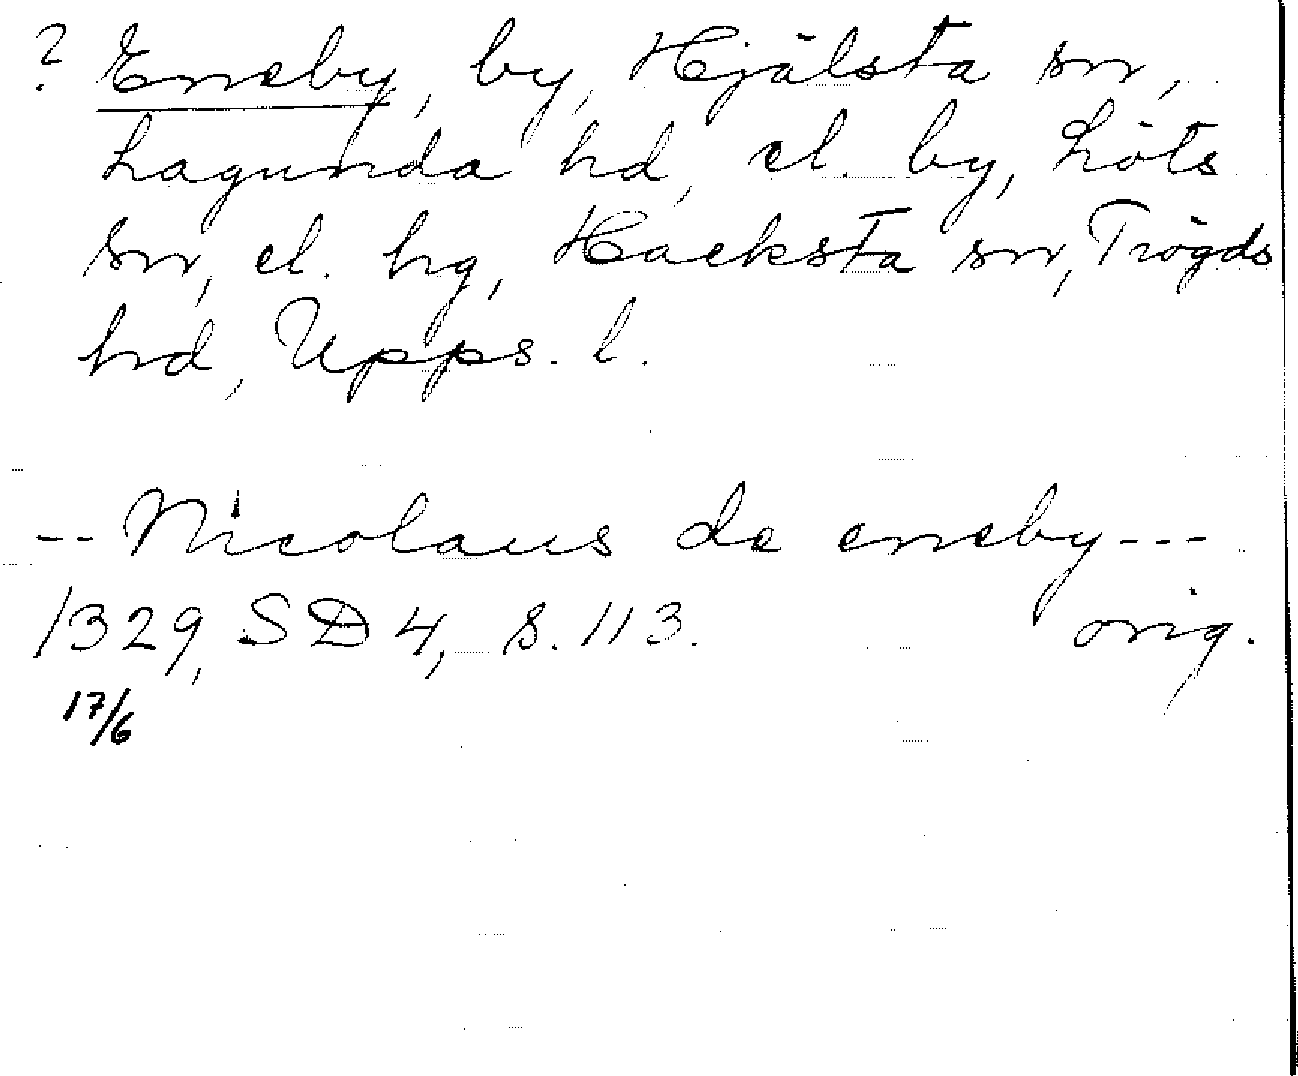 ? Eneby, by, Hjälsta sn,
Lagunda hd, el. by, Löts
sn, el. hg, Hacksta sn, Trögds
hd, Upps. l.
-- Nicolaus de eneby ---
1329, SD 4, s. 113. orig.
17/6